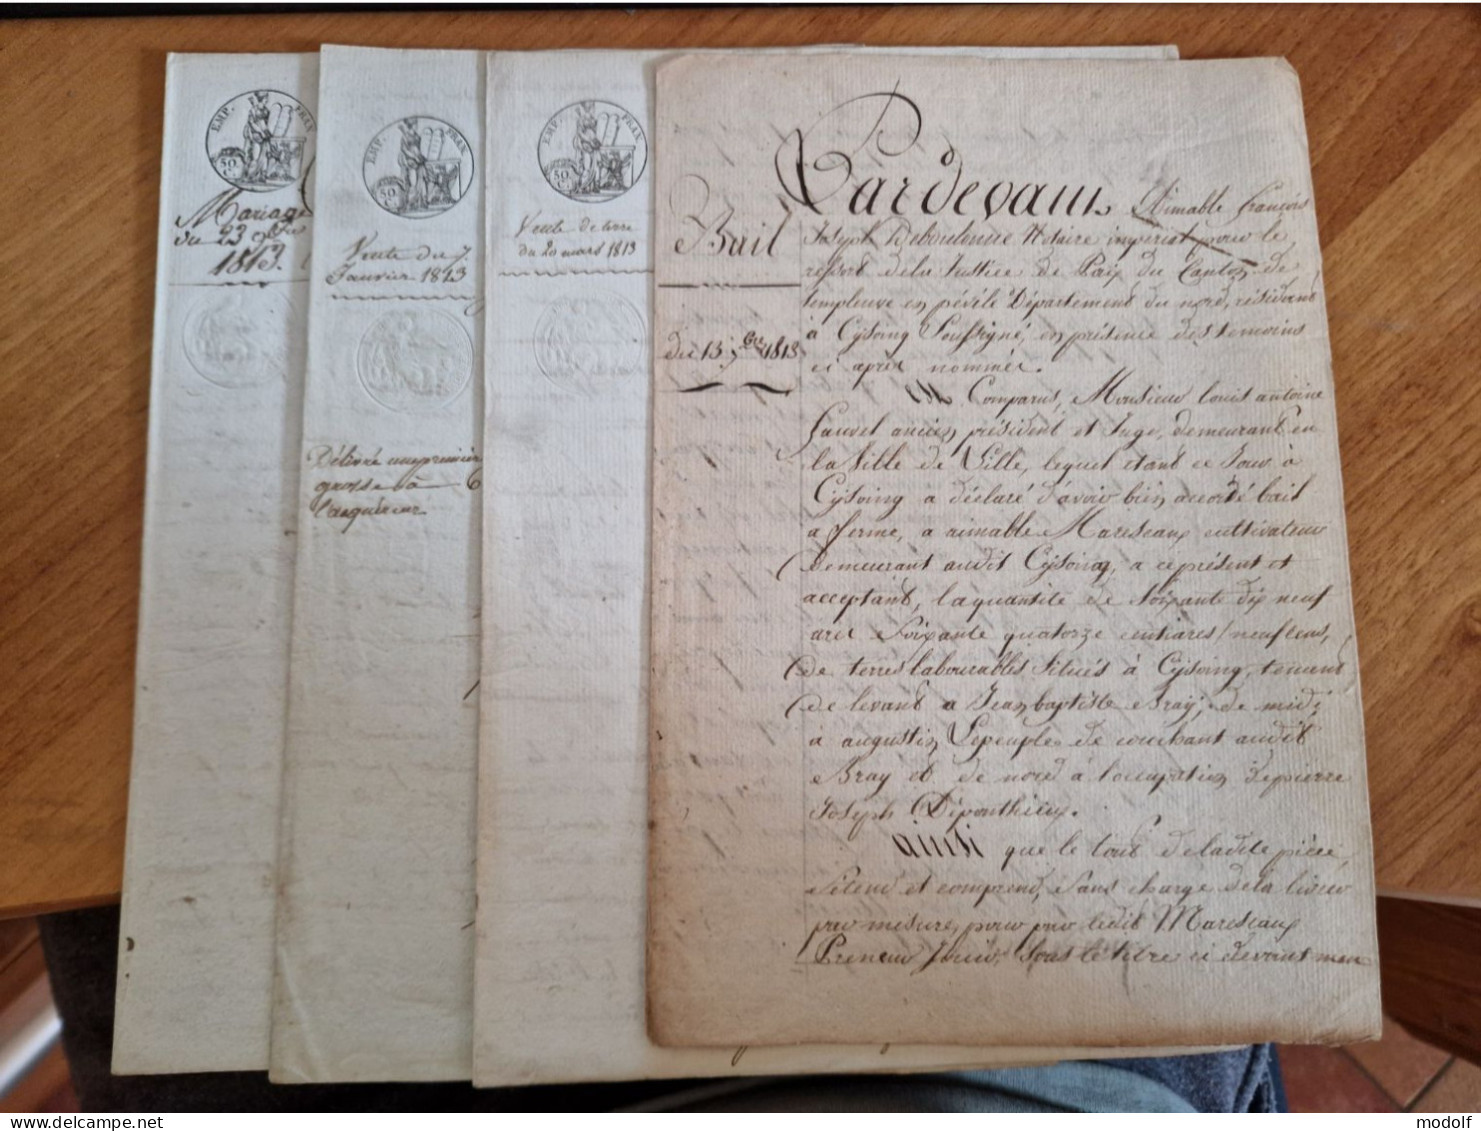 EMP. FRAN
50 C
Mariage
du 23 9bre
1813.
EMP. FRAN
50 C
Vente du 7
Janvier 1813
Délivré une première
grosse à
l'acquéreur
EMP. FRAN
50 C
Vente de terre
du 20 mars 1813
Bail
du 13 9bre 1813
Pardevant Aimable françois
Joseph Notaire impérial pour le
ressort de la Justice de Paix du Canton de
templeuve en pévèle Département du nord, résidant
à Cysoing Soussigné, en présence des temoins
ci après nommés.
Est Comparus, Monsieur louis antoine
fauvel ancien président et Juge, demeurant en
la Ville de Lille, lequel étant ce Jour à
Cysoing a déclaré d'avoir bien accordé bail
a ferme, a aimable Maresceaux cultivateur
demeurant audit Cysoing, a ce présent et
acceptant, la quantité de Soixante dix neuf
ares Soixante quatorze centiares / neuf cens,
de terres labourables Situés à Cysoing, tenant
de levant a Jean baptiste Bray, de midi
a augustin Lepeuple de couchant audit
Bray et de nord à l'occupation de pierre
Joseph Deponthieux.
ainsi que le tout de la dite pièce,
S'étend et comprend, Sans charge de la livrer
par mesure, pour par ledit Maresceaux
Preneur Jouir, Sous le titre ci devant men
www.delcampe.net
modolf